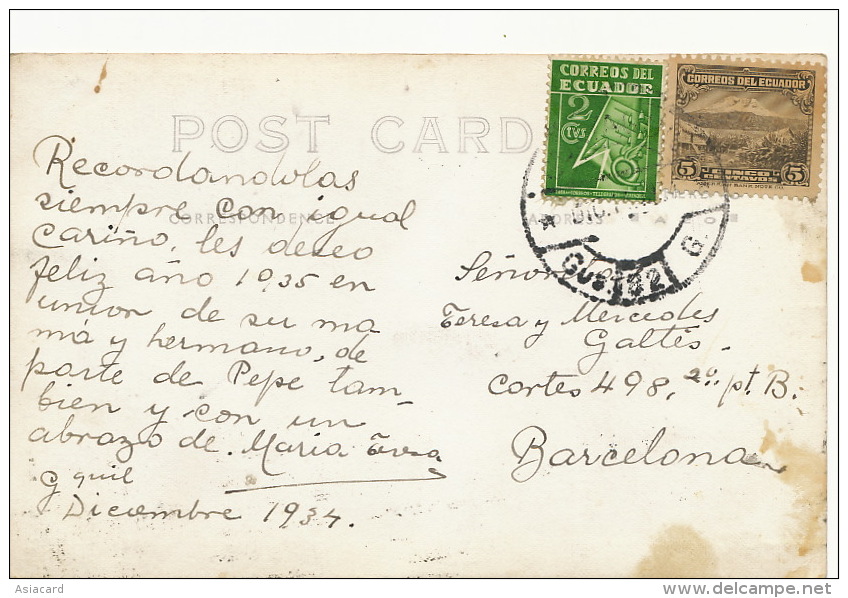 POST CARD
CORRESPONDENCE
Recordandolas
siempre con igual
cariño, les deseo
feliz año 1935 en
union de su ma
má y hermano, de
parte de Pepe tam-
bien y con un
abrazo de Maria Teresa
G quil
Diciembre 1934.
CORREOS DEL
ECUADOR
2
CTVS
CORREOS DEL ECUADOR
5 CINCO 5
CENTAVOS
AMERICAN BANK NOTE CO.
Teresa y Mercedes
Galtés.
Cortes 498, 2º pt. B.
Barcelona
Asiacard
delcampe.net